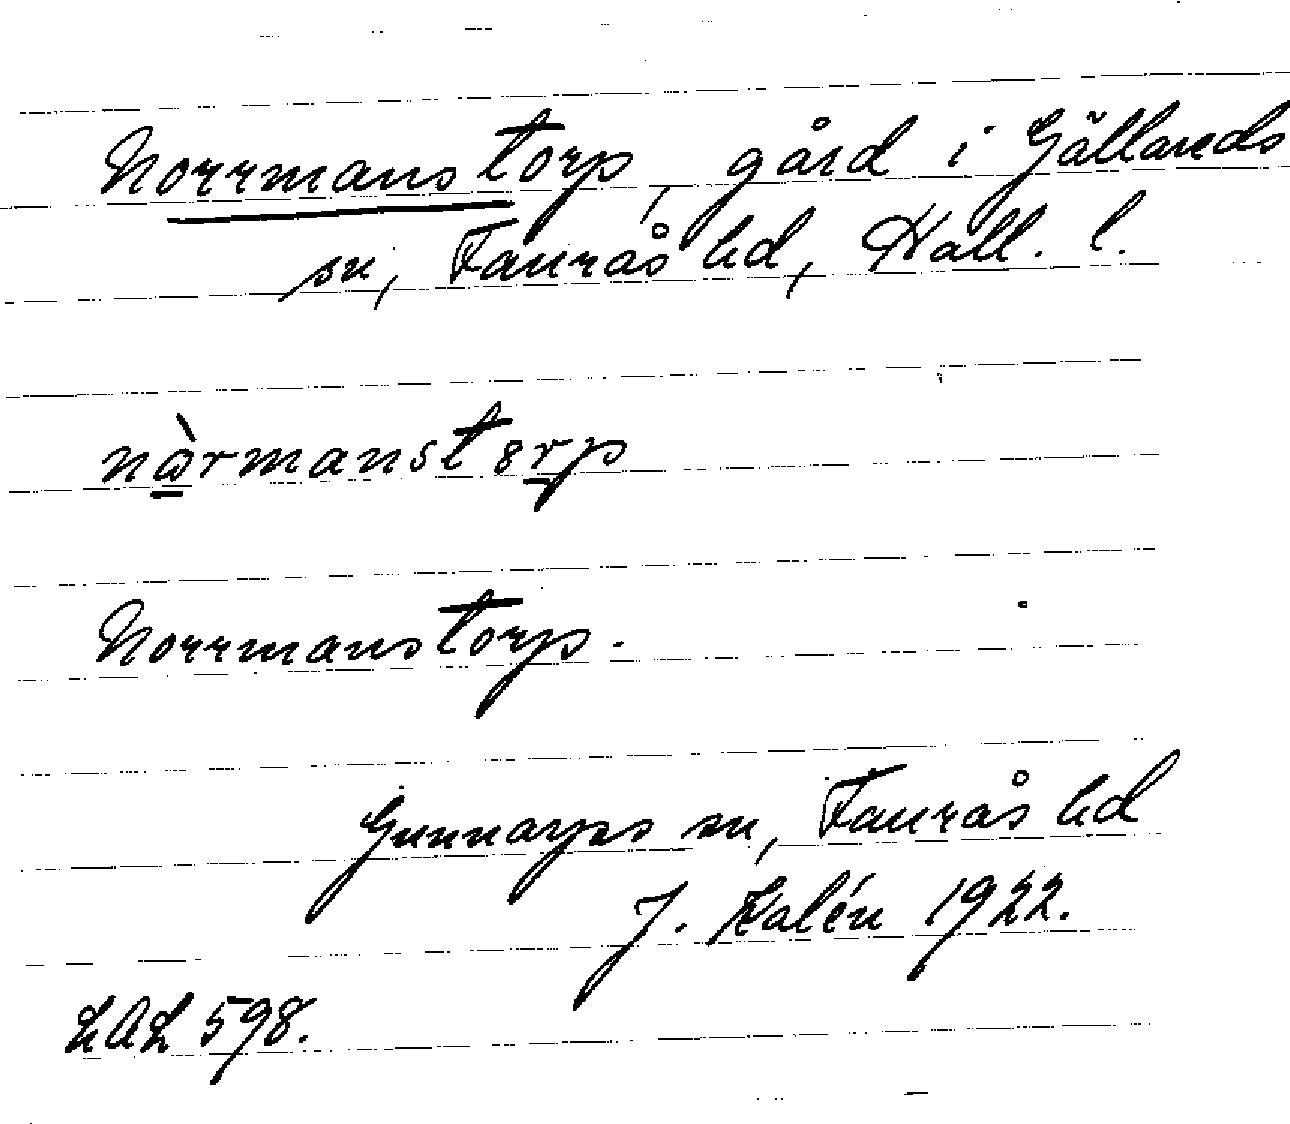 Norrmanstorp, gård i Gällareds
sn, Faurås hd, Hall. l.
nὼrmanst8rp
Norrmanstorp.
Gunnarps sn, Faurås hd
J. Kalén 1922.
LAL 598.